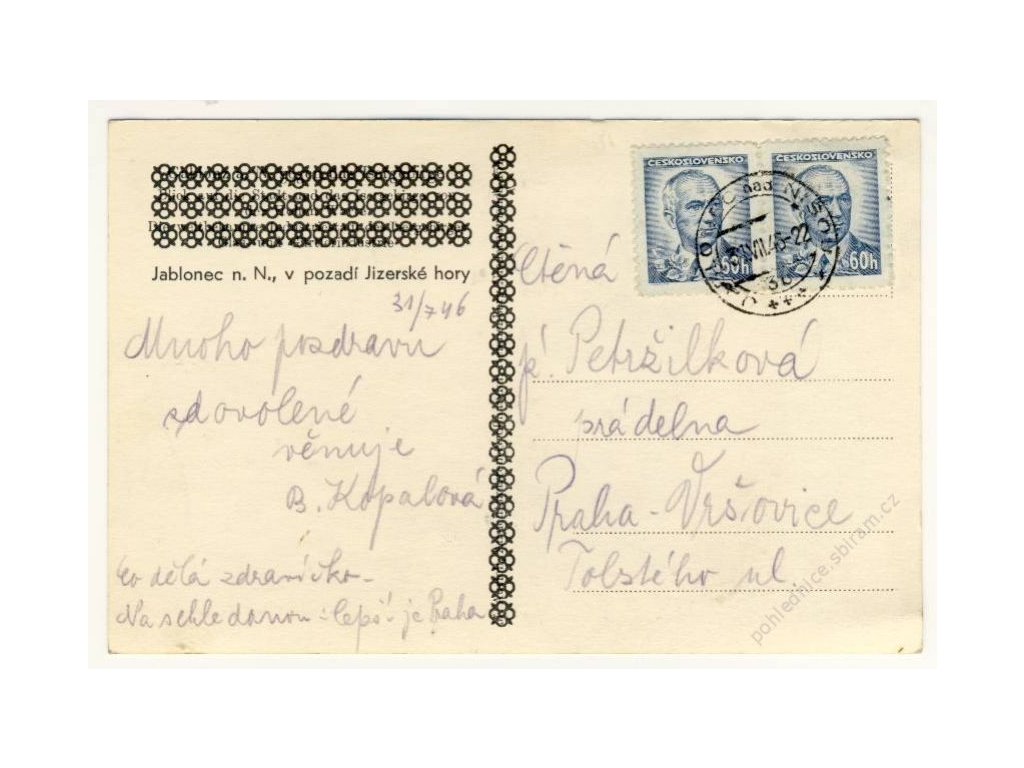 Jablonec n. N., v pozadí Jizerské hory
31/7 46
Mnoho pozdravu
z dovolené
věnuje
B. Kopalová
Co dělá zdravíčko -
Na schledanou : lepší je Praha
ČESKOSLOVENSKO
60h
ČESKOSLOVENSKO
60h
nad NISOU
31.VII.46-22
3b
Ctěná
pí Petržilková
prádelna
Praha - Vršovice
Tolstého ul.
pohlednice.sbiram.cz